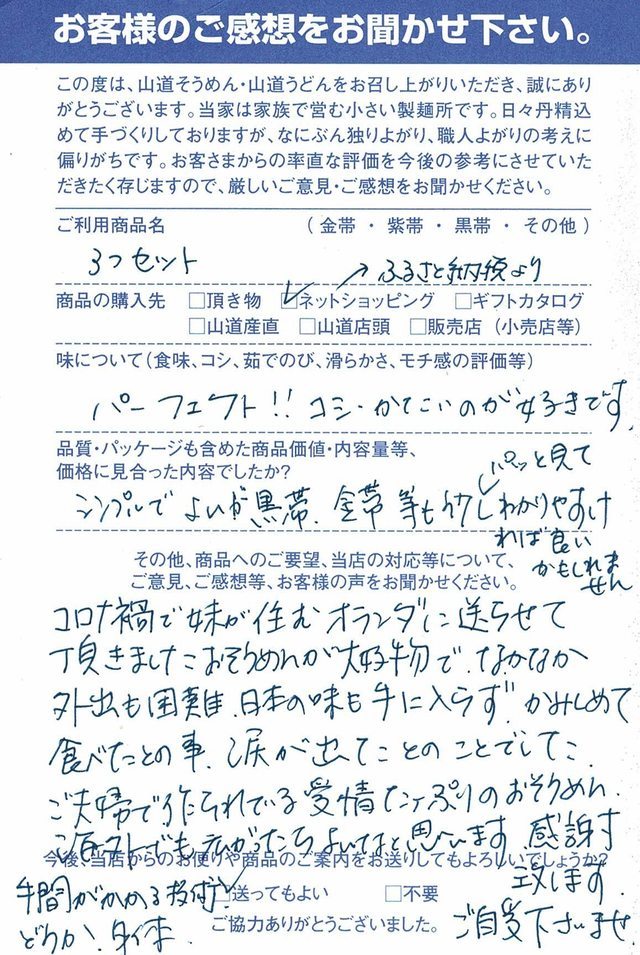 お客様のご感想をお聞かせ下さい。
この度は、山道そうめん・山道うどんをお召し上がりいただき、誠にあり
がとうございます。当家は家族で営む小さい製麺所です。日々丹精込
めて手づくりしておりますが、なにぶん独りよがり、職人よがりの考えに
偏りがちです。お客さまからの率直な評価を今後の参考にさせていた
だきたく存じますので、厳しいご意見・ご感想をお聞かせください。
ご利用商品名 （ 金帯 ・ 紫帯 ・ 黒帯 ・ その他 ）
3つセット
→ ふるさと納税より
商品の購入先 □頂き物 ☑ネットショッピング □ギフトカタログ
□山道産直 □山道店頭 □販売店（小売店等）
味について（食味、コシ、茹でのび、滑らかさ、モチ感の評価等）
パーフェクト!! コシ・かたいのが好きです
品質・パッケージも含めた商品価値・内容量等、
価格に見合った内容でしたか?
パッと見て
シンプルでよいが黒帯、金帯等もう少しわかりやすけ
れば良い
かもしれま
せん
その他、商品へのご要望、当店の対応等について、
ご意見、ご感想等、お客様の声をお聞かせください。
コロナ禍で妹が住むオランダに送らせて
頂きましたおそうめんが大好物で、なかなか
外出も困難、日本の味も手に入らず、かみしめて
食べたとの事、涙が出たとのことでした。
ご夫婦で作られている愛情たっぷりのおそうめん、
海外でも広がったらよいなと思います。感謝
致します。
今後、当店からのお便りや商品のご案内をお送りしてもよろしいでしょうか?
☑送ってもよい □不要
手間がかかる技術
どうか、お体
ご自愛下さいませ
ご協力ありがとうございました。